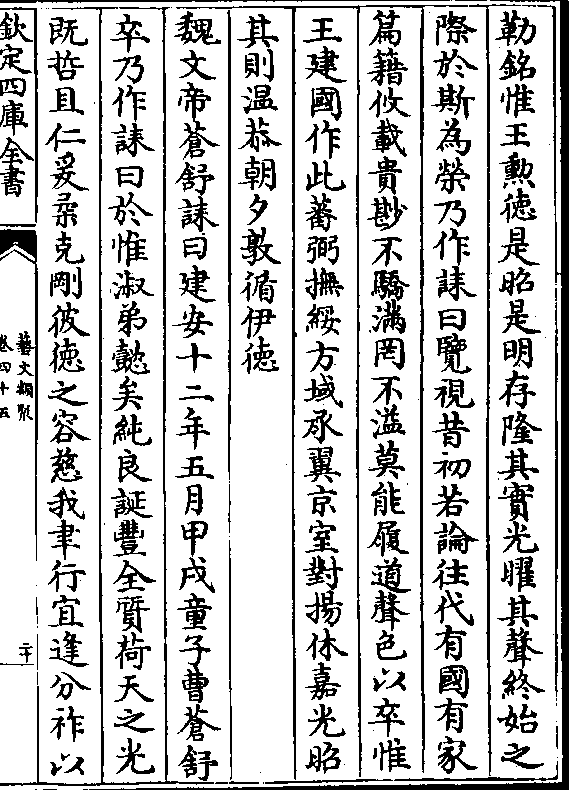 勒銘惟王勲徳是昭是明存隆其實光曜其聲終始之
際於斯為榮乃作誄曰覽視昔初若論往代有國有家
篇籍攸載貴尠不驕滿罔不溢莫能履道聲色以卒惟
王建國作此蕃弼撫綏方域承翼京室對揚休嘉光昭
其則温恭朝夕敦循伊徳
魏文帝蒼舒誄曰建安十二年五月甲戌童子曹蒼舒
卒乃作誄曰於惟淑弟懿矣純良誕豐全質荷天之光
既哲且仁爰柔克剛彼徳之容慈我聿行宜逢分祚以
欽定四庫全書
藝文類聚
卷四十五
二十